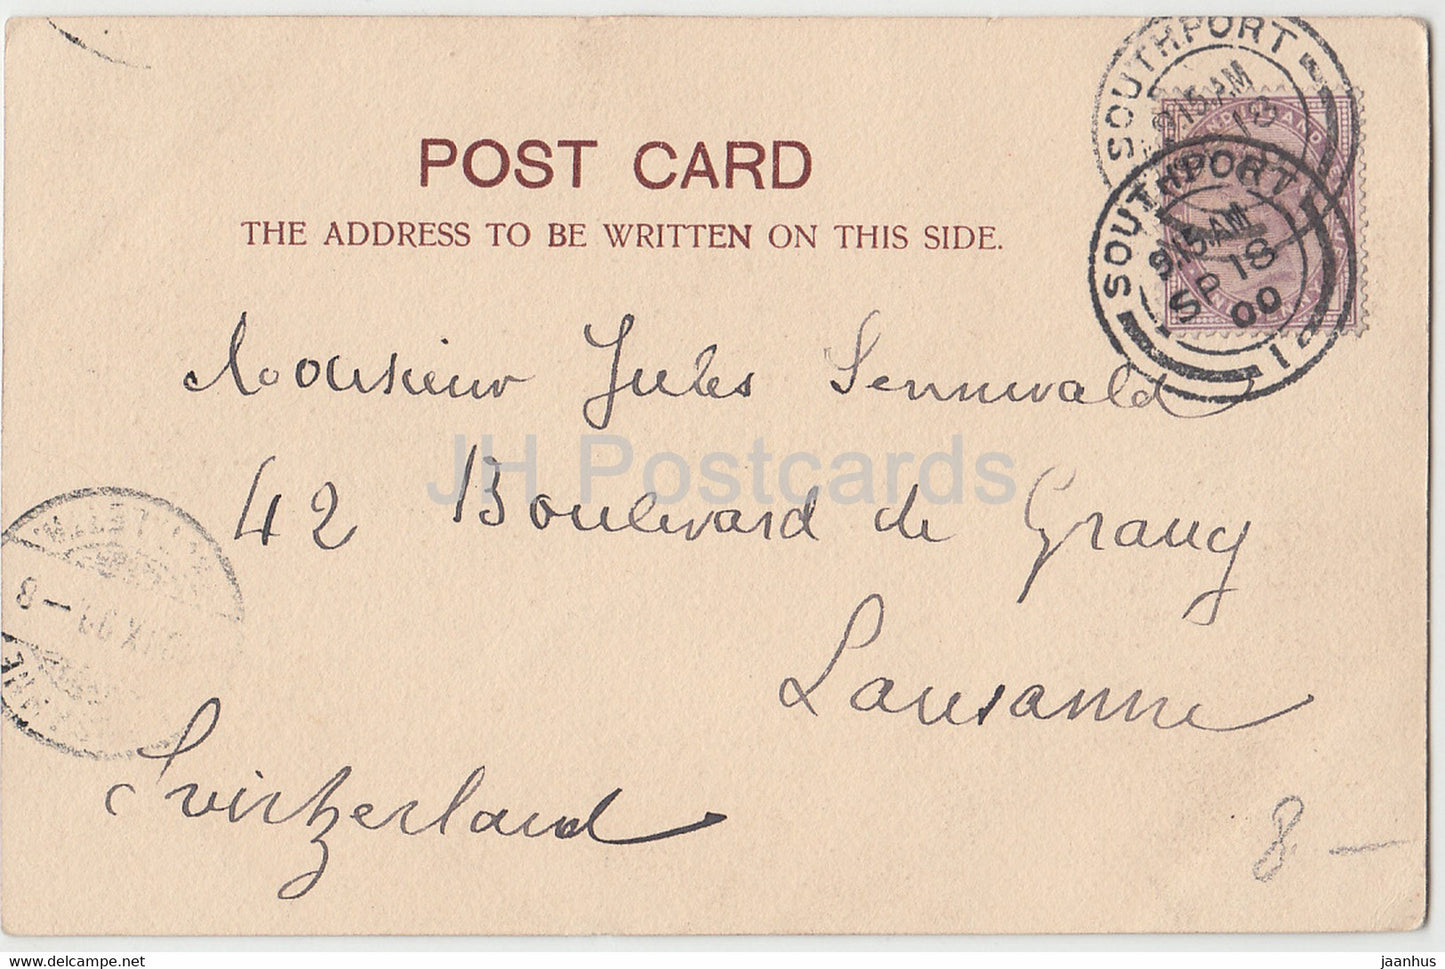 POST CARD
THE ADDRESS TO BE WRITTEN ON THIS SIDE.
SOUTHPORT
9.15 AM
18
SOUTHPORT
9.15 AM
SP 18
00
Monsieur Jules Sennwald
42 Boulevard de Grancy
Lausanne
Switzerland
JH Postcards
8 –
jaanhus